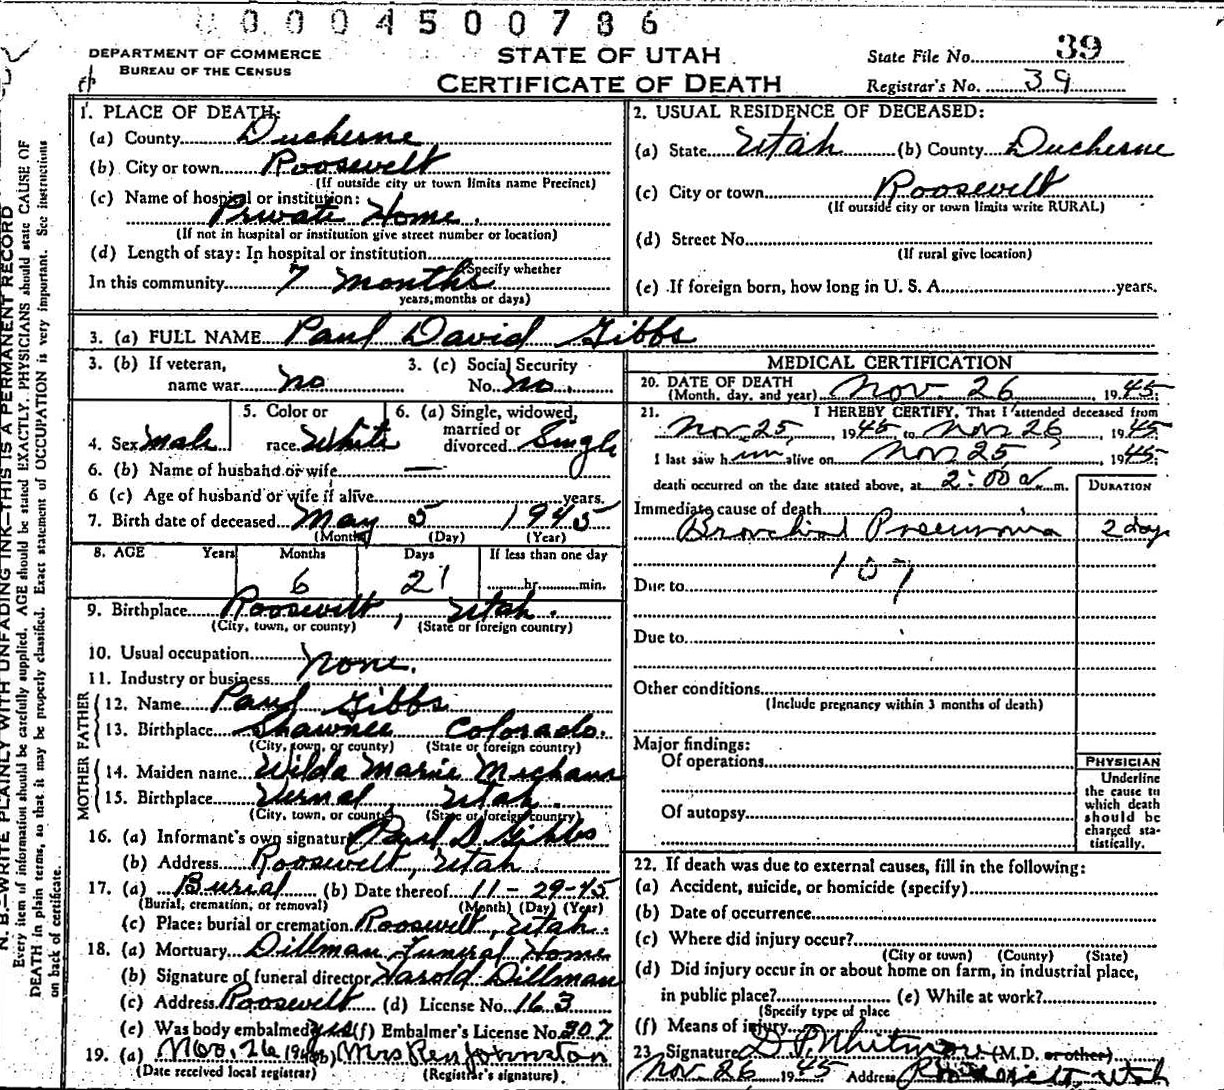 0004500786
DEPARTMENT OF COMMERCE
BUREAU OF THE CENSUS
STATE OF UTAH
CERTIFICATE OF DEATH
State File No. 39
Registrar's No. 39
N. B.—WRITE PLAINLY WITH UNFADING INK—THIS IS A PERMANENT RECORD
Every item of information should be carefully supplied. AGE should be stated EXACTLY. PHYSICIANS should state CAUSE OF
DEATH in plain terms, so that it may be properly classified. Exact statement of OCCUPATION is very important. See instructions
on back of certificate.
1. PLACE OF DEATH:
(a) County Duchesne
(b) City or town Roosevelt
(If outside city or town limits name Precinct)
(c) Name of hospital or institution:
Private Home.
(If not in hospital or institution give street number or location)
(d) Length of stay: In hospital or institution
(Specify whether
In this community 7 months
years, months or days)
2. USUAL RESIDENCE OF DECEASED:
(a) State Utah (b) County Duchesne
(c) City or town Roosevelt
(If outside city or town limits write RURAL)
(d) Street No.
(If rural give location)
(e) If foreign born, how long in U. S. A. years.
3. (a) FULL NAME Paul David Gibbs
3. (b) If veteran, name war no
3. (c) Social Security No. no.
4. Sex Male
5. Color or race White
6. (a) Single, widowed, married or divorced Single
6. (b) Name of husband or wife —
6 (c) Age of husband or wife if alive years.
7. Birth date of deceased May 5 1945
(Month) (Day) (Year)
8. AGE Years Months Days If less than one day
6 21 hr. min.
9. Birthplace Roosevelt, Utah.
(City, town, or county) (State or foreign country)
10. Usual occupation none.
11. Industry or business
FATHER
12. Name Paul Gibbs
13. Birthplace Shawnee Colorado.
(City, town, or county) (State or foreign country)
MOTHER
14. Maiden name Wilda Marie
15. Birthplace Vernal, Utah.
(City, town, or county) (State or foreign country)
16. (a) Informant's own signature Paul D Gibbs
(b) Address Roosevelt, Utah
17. (a) Burial (b) Date thereof 11-29-45
(Burial, cremation, or removal) (Month) (Day) (Year)
(c) Place: burial or cremation Roosevelt, Utah.
18. (a) Mortuary Dillman Funeral Home
(b) Signature of funeral director Harold Dillman
(c) Address Roosevelt (d) License No. 163
(e) Was body embalmed yes (f) Embalmer's License No. 207
19. (a) Nov. 26 1945 (b) Mrs Ren Johnston
(Date received local registrar) (Registrar's signature)
MEDICAL CERTIFICATION
20. DATE OF DEATH
(Month, day, and year) Nov. 26, 1945
21. I HEREBY CERTIFY, That I attended deceased from
Nov 25, 1945 to Nov 26, 1945
I last saw him alive on Nov 25, 1945;
death occurred on the date stated above, at 2:00 a. m.
DURATION
Immediate cause of death
Bronchial Pneumonia 2 days
107
Due to
Due to
Other conditions
(Include pregnancy within 3 months of death)
Major findings:
Of operations
Of autopsy
PHYSICIAN
Underline
the cause to
which death
should be
charged sta-
tistically.
22. If death was due to external causes, fill in the following:
(a) Accident, suicide, or homicide (specify)
(b) Date of occurrence
(c) Where did injury occur?
(City or town) (County) (State)
(d) Did injury occur in or about home on farm, in industrial place,
in public place? (e) While at work?
(Specify type of place
(f) Means of injury
23. Signature D. P. Whitmore (M.D. or other)
Nov 26 1945 Address Roosevelt Utah